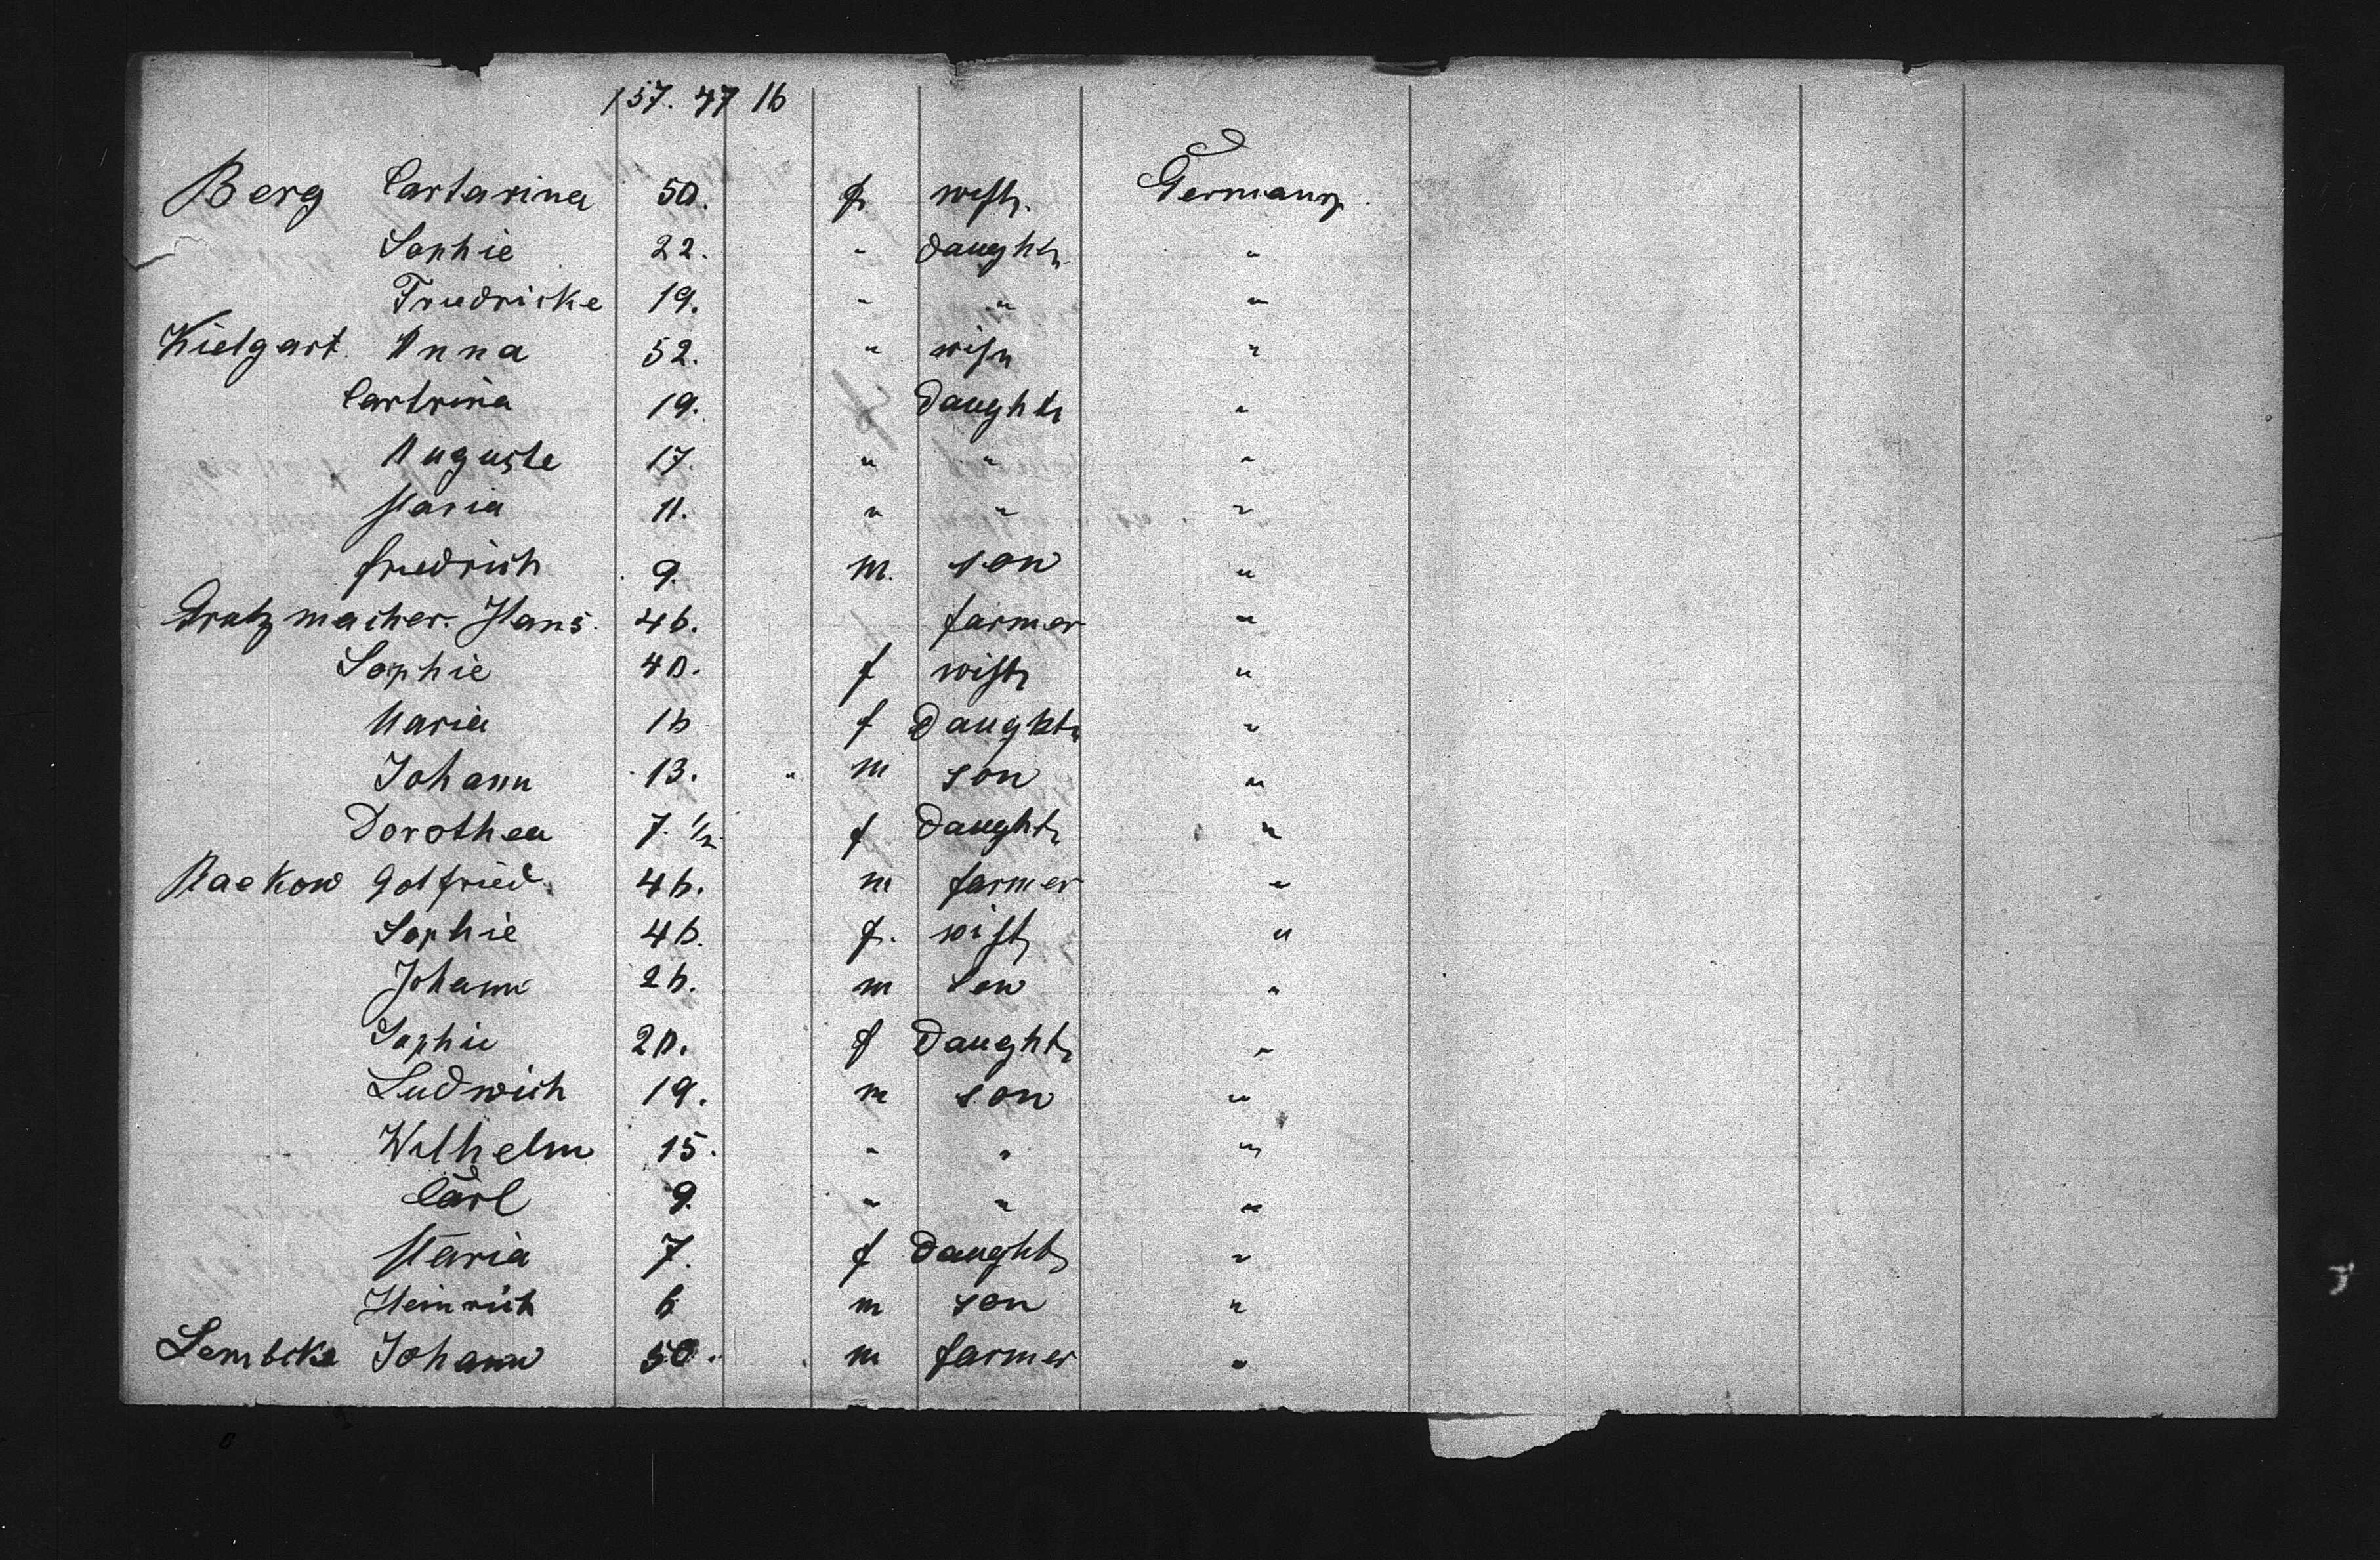 157. 47 16
Berg Cartarina 50. f wife. Germany.
Sophie 22. " daughter "
Friedricke 19. " " "
Kielgart. Anna 52. " wife "
Cartrina 19. daughter "
Auguste 17. " " "
Maria 11. " " "
Friedrich 9. m. son "
macher. Hans. 46. farmer "
Sophie 40. f wife "
Maria 16 f Daughter "
Johann 13. " m son "
Dorothea 7. 1/2 f daughter "
Raekow Gotfried. 46. m farmer "
Sophie 46. f. wife "
Johann 26. m son "
Sophie 20. f Daughter "
Ludwich 19. m son "
Wilhelm 15. " " "
Carl 9. " " "
Maria 7. f Daughter "
Heinrich 6 m son "
Lembcke Johann 50. m farmer "